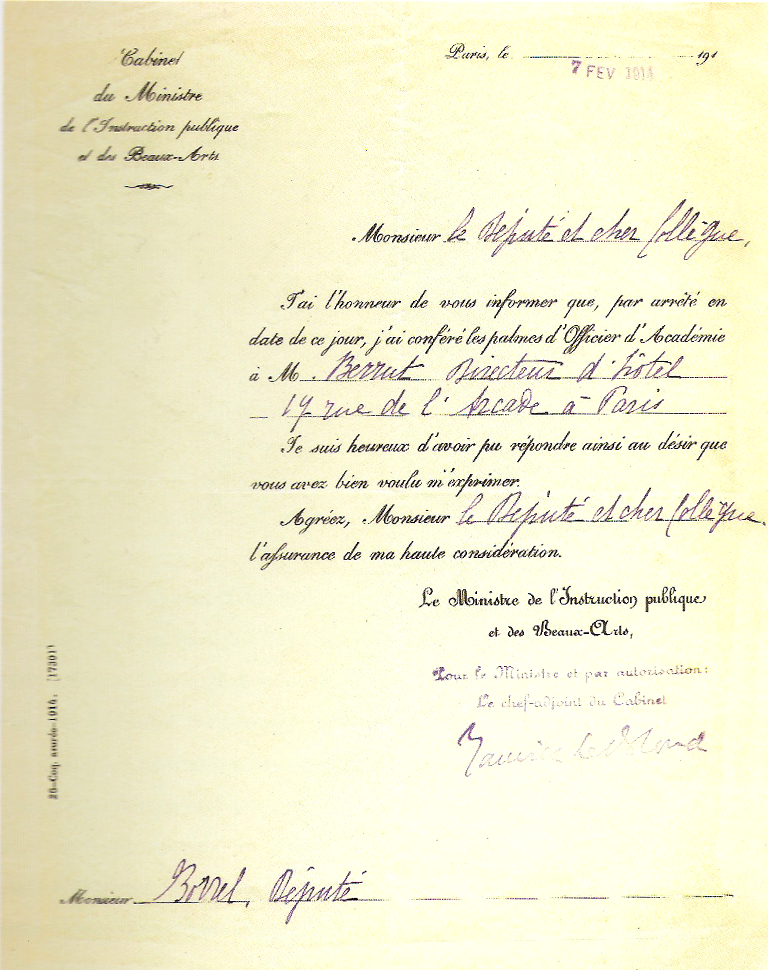 Cabinet
du Ministre
de l'Instruction publique
et des Beaux-Arts
Paris, le 191
7 FEV 1914
Monsieur le Député et cher Collègue,
J'ai l'honneur de vous informer que, par arrêté en
date de ce jour, j'ai conféré les palmes d'Officier d'Académie
à M. Berrut Directeur d'hôtel
17 rue de l'Arcade à Paris
Je suis heureux d'avoir pu répondre ainsi au désir que
vous avez bien voulu m'exprimer.
Agréez, Monsieur le Député et cher Collègue,
l'assurance de ma haute considération.
Le Ministre de l'Instruction publique
et des Beaux-Arts,
Pour le Ministre et par autorisation:
Le chef-adjoint du Cabinet
Maurice
Monsieur Borrel, Député